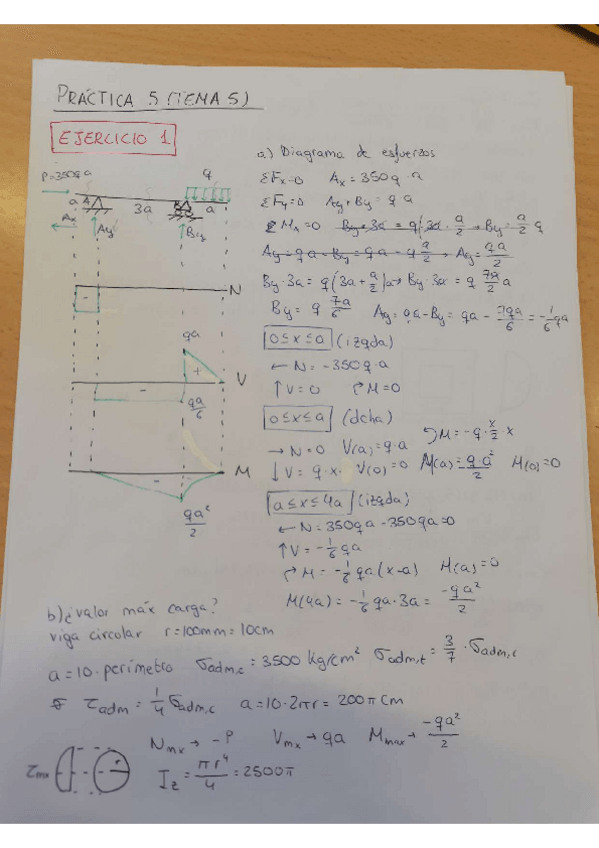 PRÁCTICA 5 (TEMA 5)
EJERCICIO 1
a) Diagrama de esfuerzos
P=350q·a
q
a A 3a B a
Ax Ay By
ΣFx=0 Ax=350q·a
ΣFy=0 Ay+By=qa
ΣMA=0 By·3a = q(3a·a/2 → By=a/2 q
Ay=qa-By=qa-qa/2 → Ay=qa/2
By·3a = q(3a+a/2)a → By·3a = q 7a/2 a
By = q 7a/6 Ay=qa-By=qa-7qa/6=-1/6qa
0≤x≤a (izqda)
← N=-350q·a
↑V=0 M=0
0≤x≤a (dcha)
M=-q·x/2·x
→ N=0 V(a)=q·a
↓V=q·x V(0)=0 M(a)=-q·a²/2 M(0)=0
a≤x≤4a (izqda)
← N=350qa-350qa=0
↑V=-1/6qa
M=-1/6qa(x-a) M(a)=0
M(4a)=-1/6qa·3a=-qa²/2
- N
qa
+
- V
qa/6
- M
qa²/2
b) ¿valor máx carga?
viga circular r=100mm=10cm
a=10·perímetro σadm,c=3500 kg/cm² σadm,t=3/7·σadm,c
τadm=1/4σadm,c a=10·2πr=200π cm
Nmx → -P Vmx → qa Mmax → -qa²/2
τmx
Iz=πr⁴/4=2500π